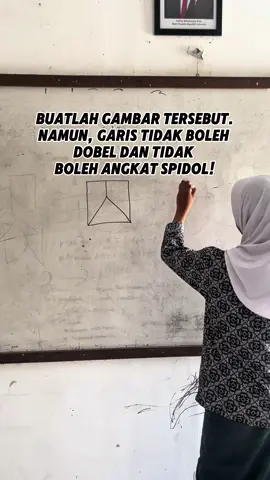 BUATLAH GAMBAR TERSEBUT.
NAMUN, GARIS TIDAK BOLEH
DOBEL DAN TIDAK
BOLEH ANGKAT SPIDOL!